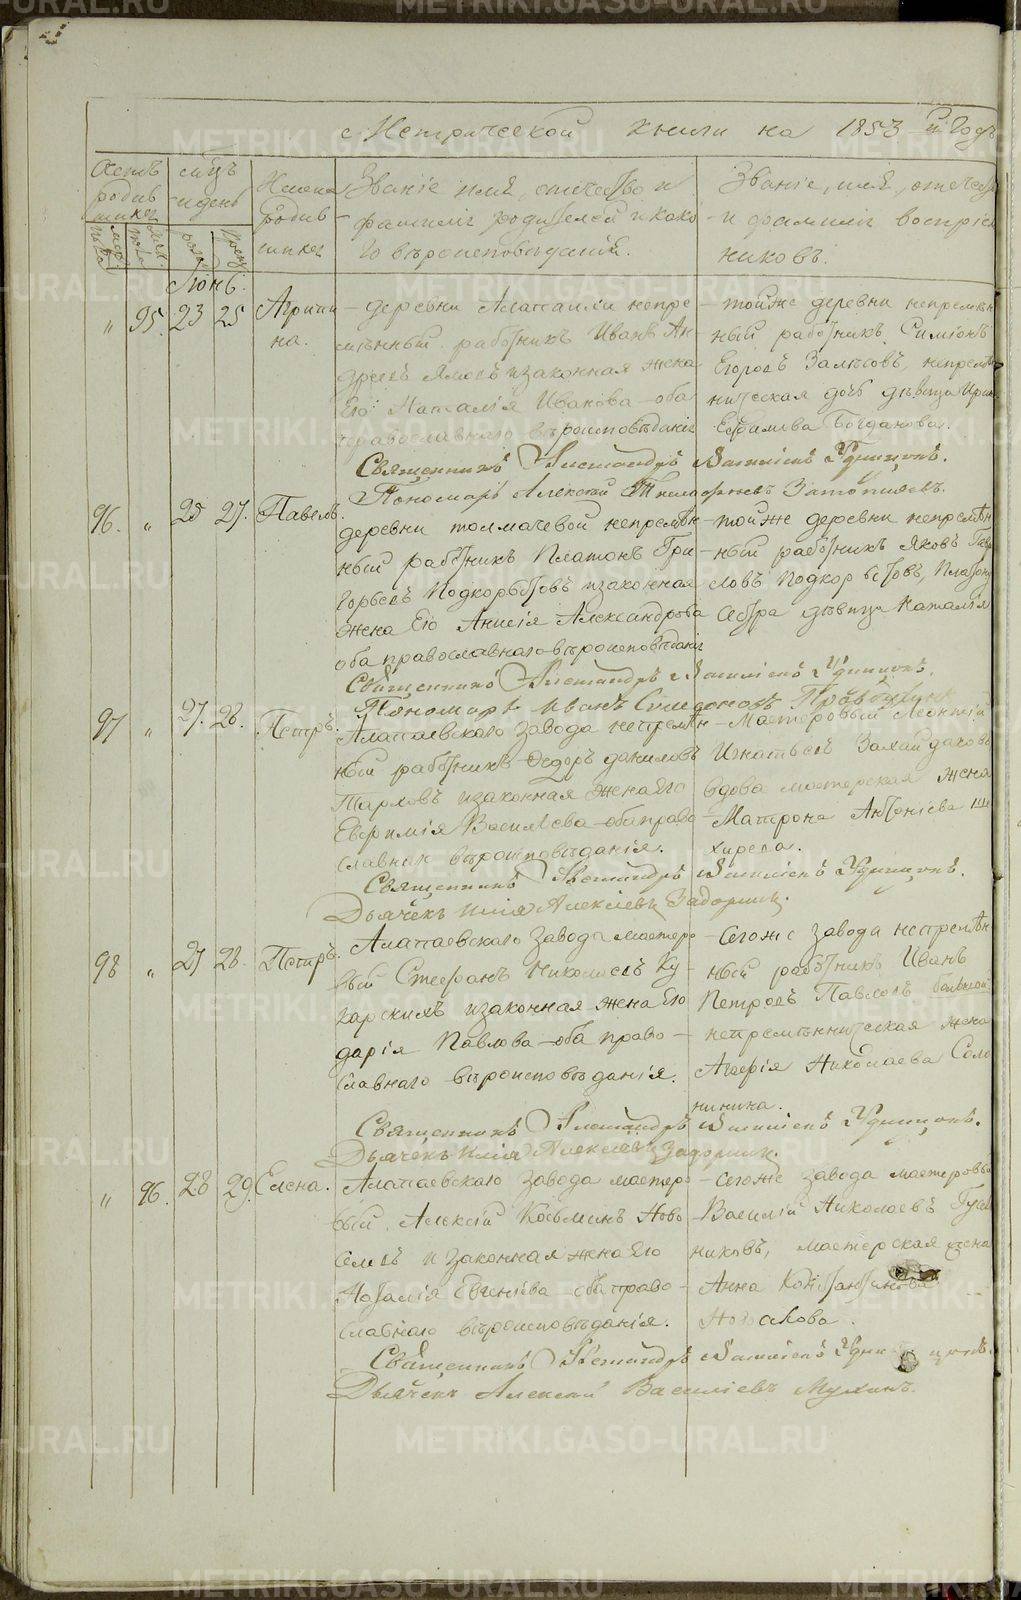 Метрической книги на 1853 й Годъ
Счетъ родившихся
мѣсяцъ и день
Имена родившихся
Званіе имя, отечество и
фамилія родителей и како
го вѣроисповѣданія.
Званіе, имя, отечество
и фамилія воспріем
никовъ.
муж. пола
жен. пола
рожд.
крещ.
Іюнь.
" 95. 23 25 Агрипи
на.
деревни Алапаихи непре
мѣнный работникъ Иванъ Ан
дреевъ Ямовъ и законная жена
Его Наталія Иванова оба
православнаго вѣроисповѣданія
тойже деревни непремѣн
ный работникъ Симіонъ
Егоровъ Залѣсовъ, непремѣн
ническая дочь дѣвица Ирин
Ефимова Богданова.
Священникъ Александръ Удинцовъ.
Пономарь Алексѣй
96. " 25 27. Павелъ.
деревни толмачевой непремѣн
ный работникъ Платонъ Гри
горьевъ Подкорытовъ и законная
жена Его Анисія Александрова
оба православнаго вѣроисповѣданія
тойже деревни непремѣн
ный работникъ Яковъ Пав
ловъ Подкорытовъ, Платону
Сестра дѣвица Наталія
Священникъ Александръ Удинцовъ.
Пономарь Иванъ
97 " 27. 28. Петръ.
Алапаевскаго завода непремѣн
ный работникъ Федоръ даниловъ
и законная жена Его
Евфимія Василіева оба право
славнаго вѣроисповѣданія.
Мастеровый Леонтій
Игнатьевъ
вдова мастерская жена
Матрона Антоніева Ши
хирева.
Священникъ Александръ Удинцовъ.
Дьячекъ Илія Алексіевъ Задоринъ.
98 " 27 28. Петръ.
Алапаевскаго завода мастеро
вый Стефанъ Николаевъ Ку
карскихъ и законная жена Его
дарія Павлова оба право
славнаго вѣроисповѣданія.
Сегоже завода непремѣн
ный работникъ Иванъ
Петровъ Павловъ
непремѣнническая жена
Агафія Николаева Соло
нинина.
Священникъ Александръ Удинцовъ.
Дьячекъ Илія Алексіевъ Задоринъ.
" 96. 28 29. Елена.
Алапаевскаго завода мастеро
вый Алексій Козьминъ Ново
селовъ и законная жена Его
Наталія Евгеніева оба право
славнаго вѣроисповѣданія.
Сегоже завода мастеровый
Василій Николаевъ
никовъ, мастерская жена
Анна Константинова
Священникъ Александръ Удинцовъ.
Дьячекъ Алексій Василіевъ Мухинъ.
METRIKI.GASO-URAL.RU